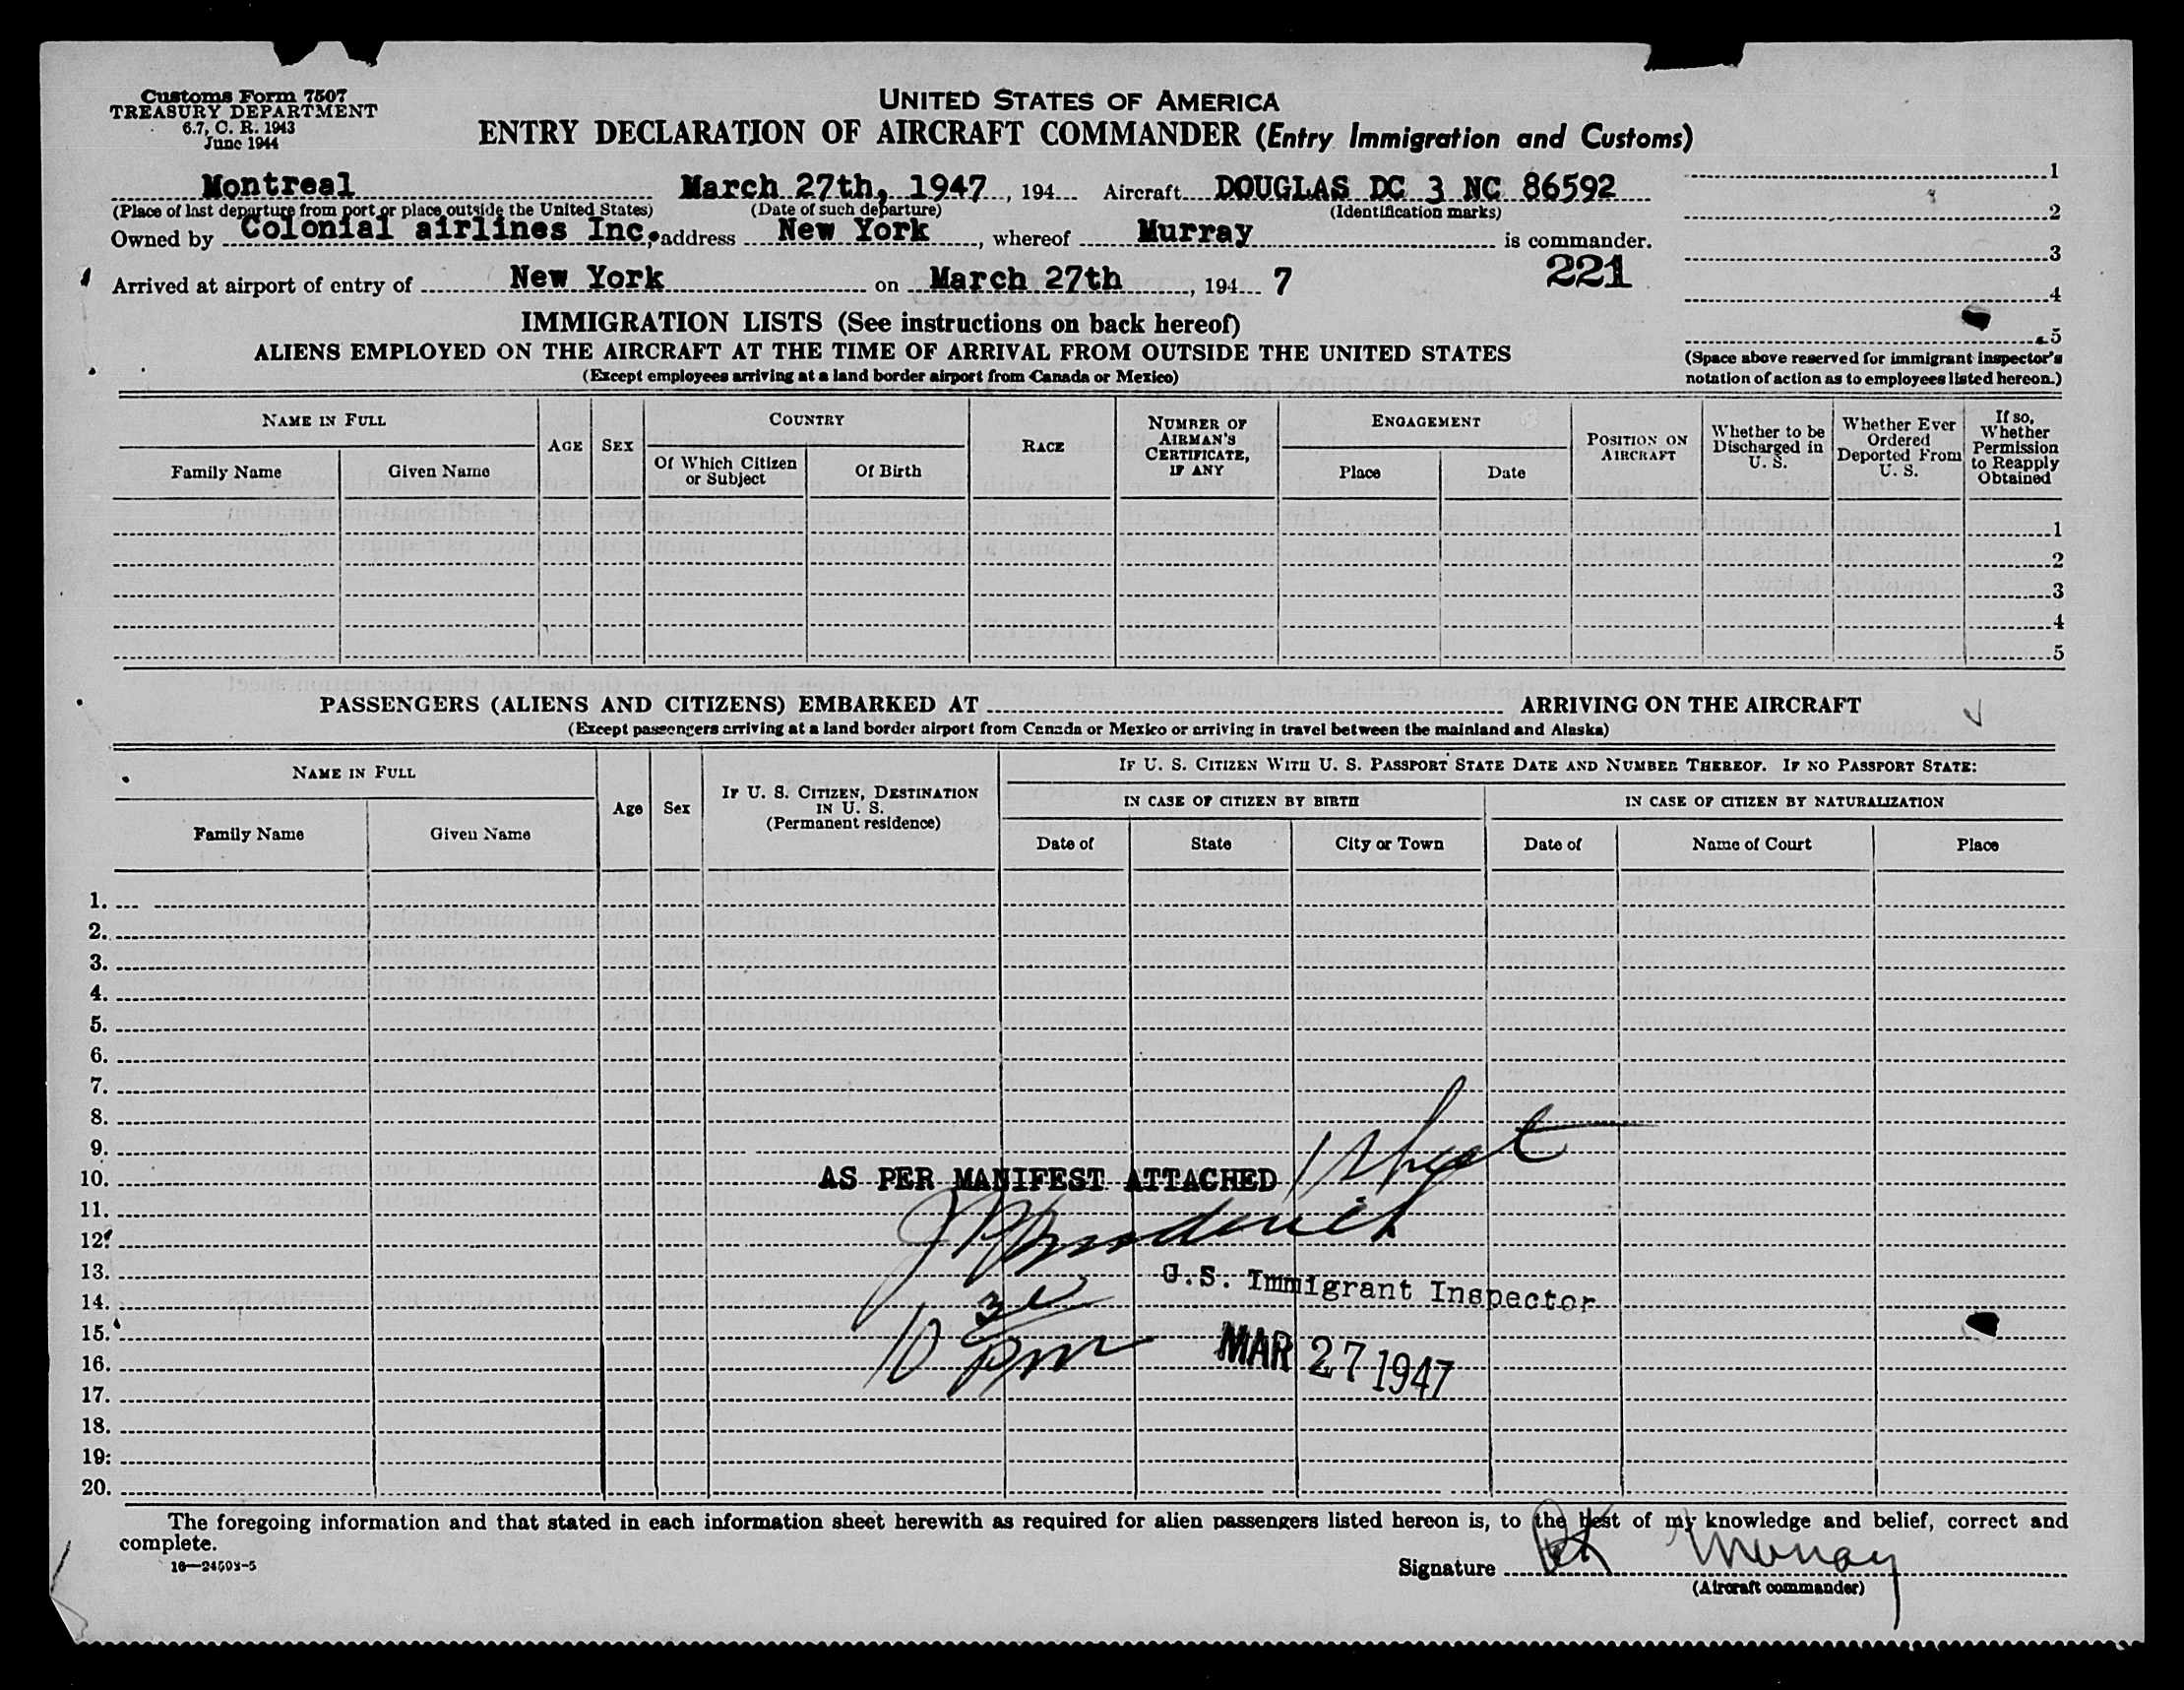 Customs Form 7507
TREASURY DEPARTMENT
6.7, C. R. 1943
June 1944
UNITED STATES OF AMERICA
ENTRY DECLARATION OF AIRCRAFT COMMANDER (Entry Immigration and Customs)
Montreal March 27th, 1947, 194 Aircraft DOUGLAS DC 3 NC 86592
(Place of last departure from port or place outside the United States) (Date of such departure) (Identification marks)
Owned by Colonial airlines Inc, address New York, whereof Murray is commander.
Arrived at airport of entry of New York on March 27th, 194 7 221
1
2
3
4
5
(Space above reserved for immigrant inspector's
notation of action as to employees listed hereon.)
IMMIGRATION LISTS (See instructions on back hereof)
ALIENS EMPLOYED ON THE AIRCRAFT AT THE TIME OF ARRIVAL FROM OUTSIDE THE UNITED STATES
(Except employees arriving at a land border airport from Canada or Mexico)
NAME IN FULL
Family Name
Given Name
AGE
SEX
COUNTRY
Of Which Citizen
or Subject
Of Birth
RACE
NUMBER OF
AIRMAN'S
CERTIFICATE,
IF ANY
ENGAGEMENT
Place
Date
POSITION ON
AIRCRAFT
Whether to be
Discharged in
U. S.
Whether Ever
Ordered
Deported From
U. S.
If so,
Whether
Permission
to Reapply
Obtained
1
2
3
4
5
PASSENGERS (ALIENS AND CITIZENS) EMBARKED AT ARRIVING ON THE AIRCRAFT
(Except passengers arriving at a land border airport from Canada or Mexico or arriving in travel between the mainland and Alaska)
NAME IN FULL
Family Name
Given Name
Age
Sex
IF U. S. CITIZEN, DESTINATION
IN U. S.
(Permanent residence)
IF U. S. CITIZEN WITH U. S. PASSPORT STATE DATE AND NUMBER THEREOF. IF NO PASSPORT STATE:
IN CASE OF CITIZEN BY BIRTH
IN CASE OF CITIZEN BY NATURALIZATION
Date of
State
City or Town
Date of
Name of Court
Place
1.
2.
3.
4.
5.
6.
7.
8.
9.
10. AS PER MANIFEST ATTACHED 1 Sheet
11.
12.
13. U.S. Immigrant Inspector
14.
15. 10 30 pm MAR 27 1947
16.
17.
18.
19.
20.
The foregoing information and that stated in each information sheet herewith as required for alien passengers listed hereon is, to the best of my knowledge and belief, correct and
complete.
16—24593-5
Signature Murray
(Aircraft commander)